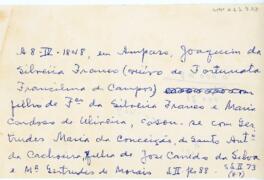 A 8-IV-1848, em Amparo, Joaquim da
Silveira Franco (viúvo de Fortunata
Francelina de Campos)
filho de Fco da Silveira Franco e Maria
Cardoso de Oliveira, casou-se com Ger-
trudes Maria da Conceição, de Santo Antº
da Cachoeira, filha de José Candido da Silva
e Mª Gertrudes de Morais